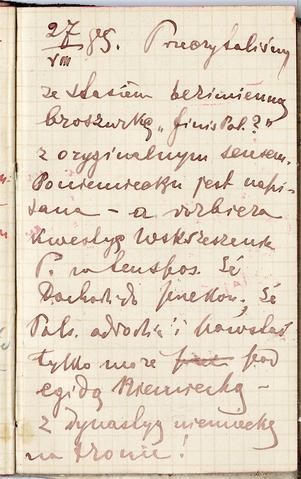 27/VIII 89. Przeczytaliśmy
ze Stasiem bezimienną
broszurkę „Finis Pol.?"
z oryginalnym sensem.
Po niemiecku jest napi-
sana – a rozbiera
kwestyę wskrzeszenia
P. w ten spos. że
Dochodzi do że
Pols. odrodzić i powstać
tylko może pod
egidą Niemiecką –
z dynastyą niemiecką
na tronie!